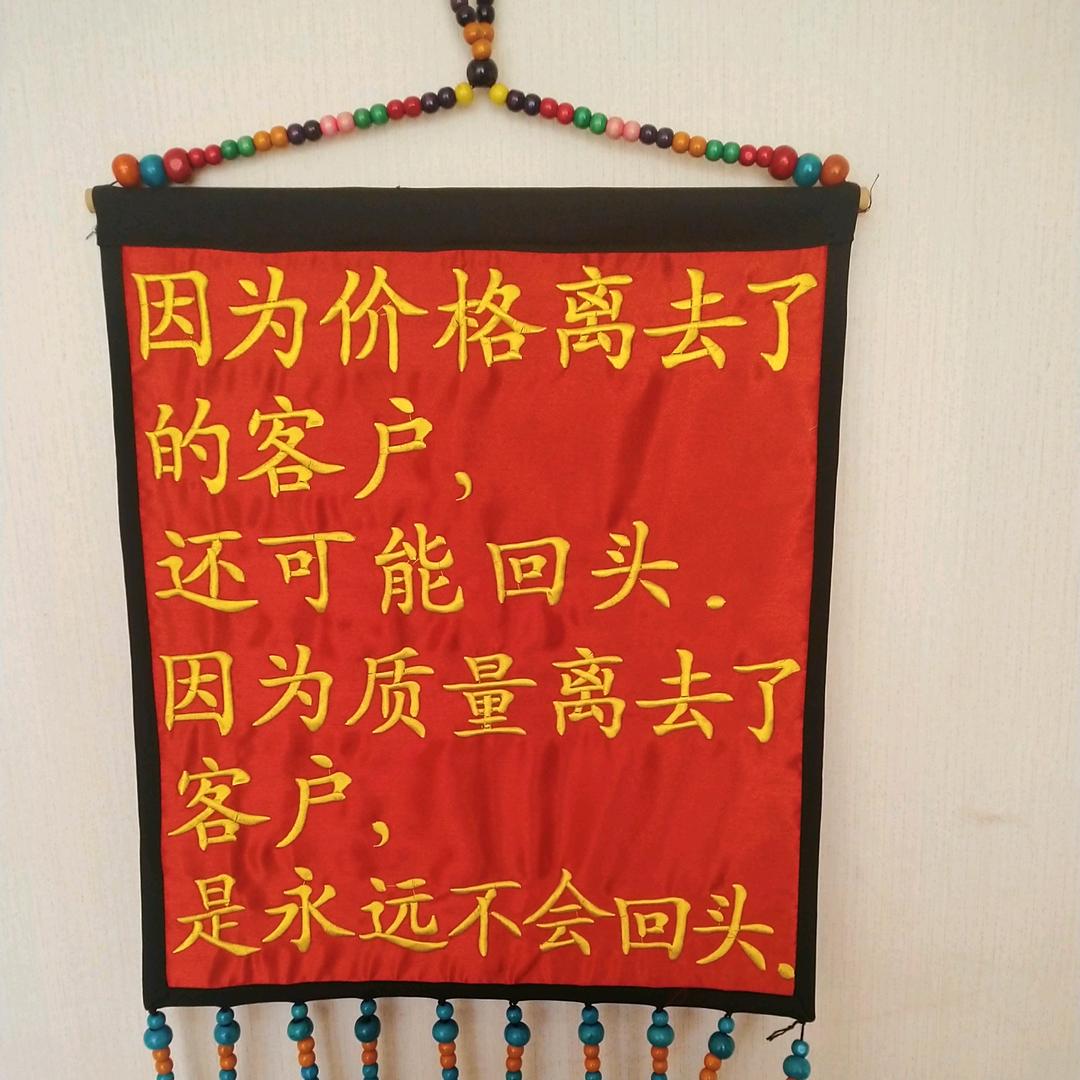 因为价格离去了
的客户，
还可能回头.
因为质量离去了
客户，
是永远不会回头.